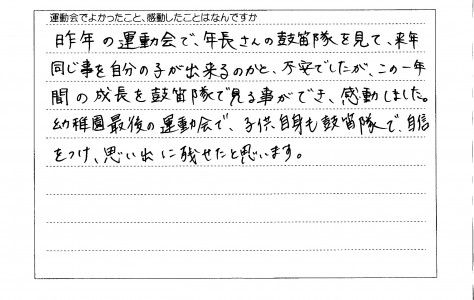 運動会でよかったこと、感動したことはなんですか
昨年の運動会で、年長さんの鼓笛隊を見て、来年
同じ事を自分の子が出来るのかと、不安でしたが、この一年
間の成長を鼓笛隊で見る事ができ、感動しました。
幼稚園最後の運動会で、子供自身も鼓笛隊で、自信
をつけ、思い出に残せたと思います。